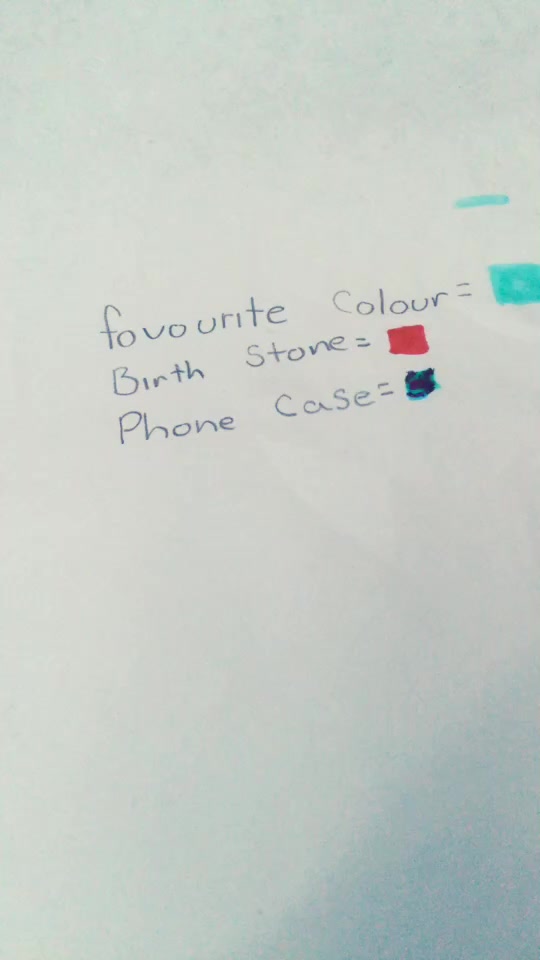 favourite Colour =
Birth Stone =
Phone Case =